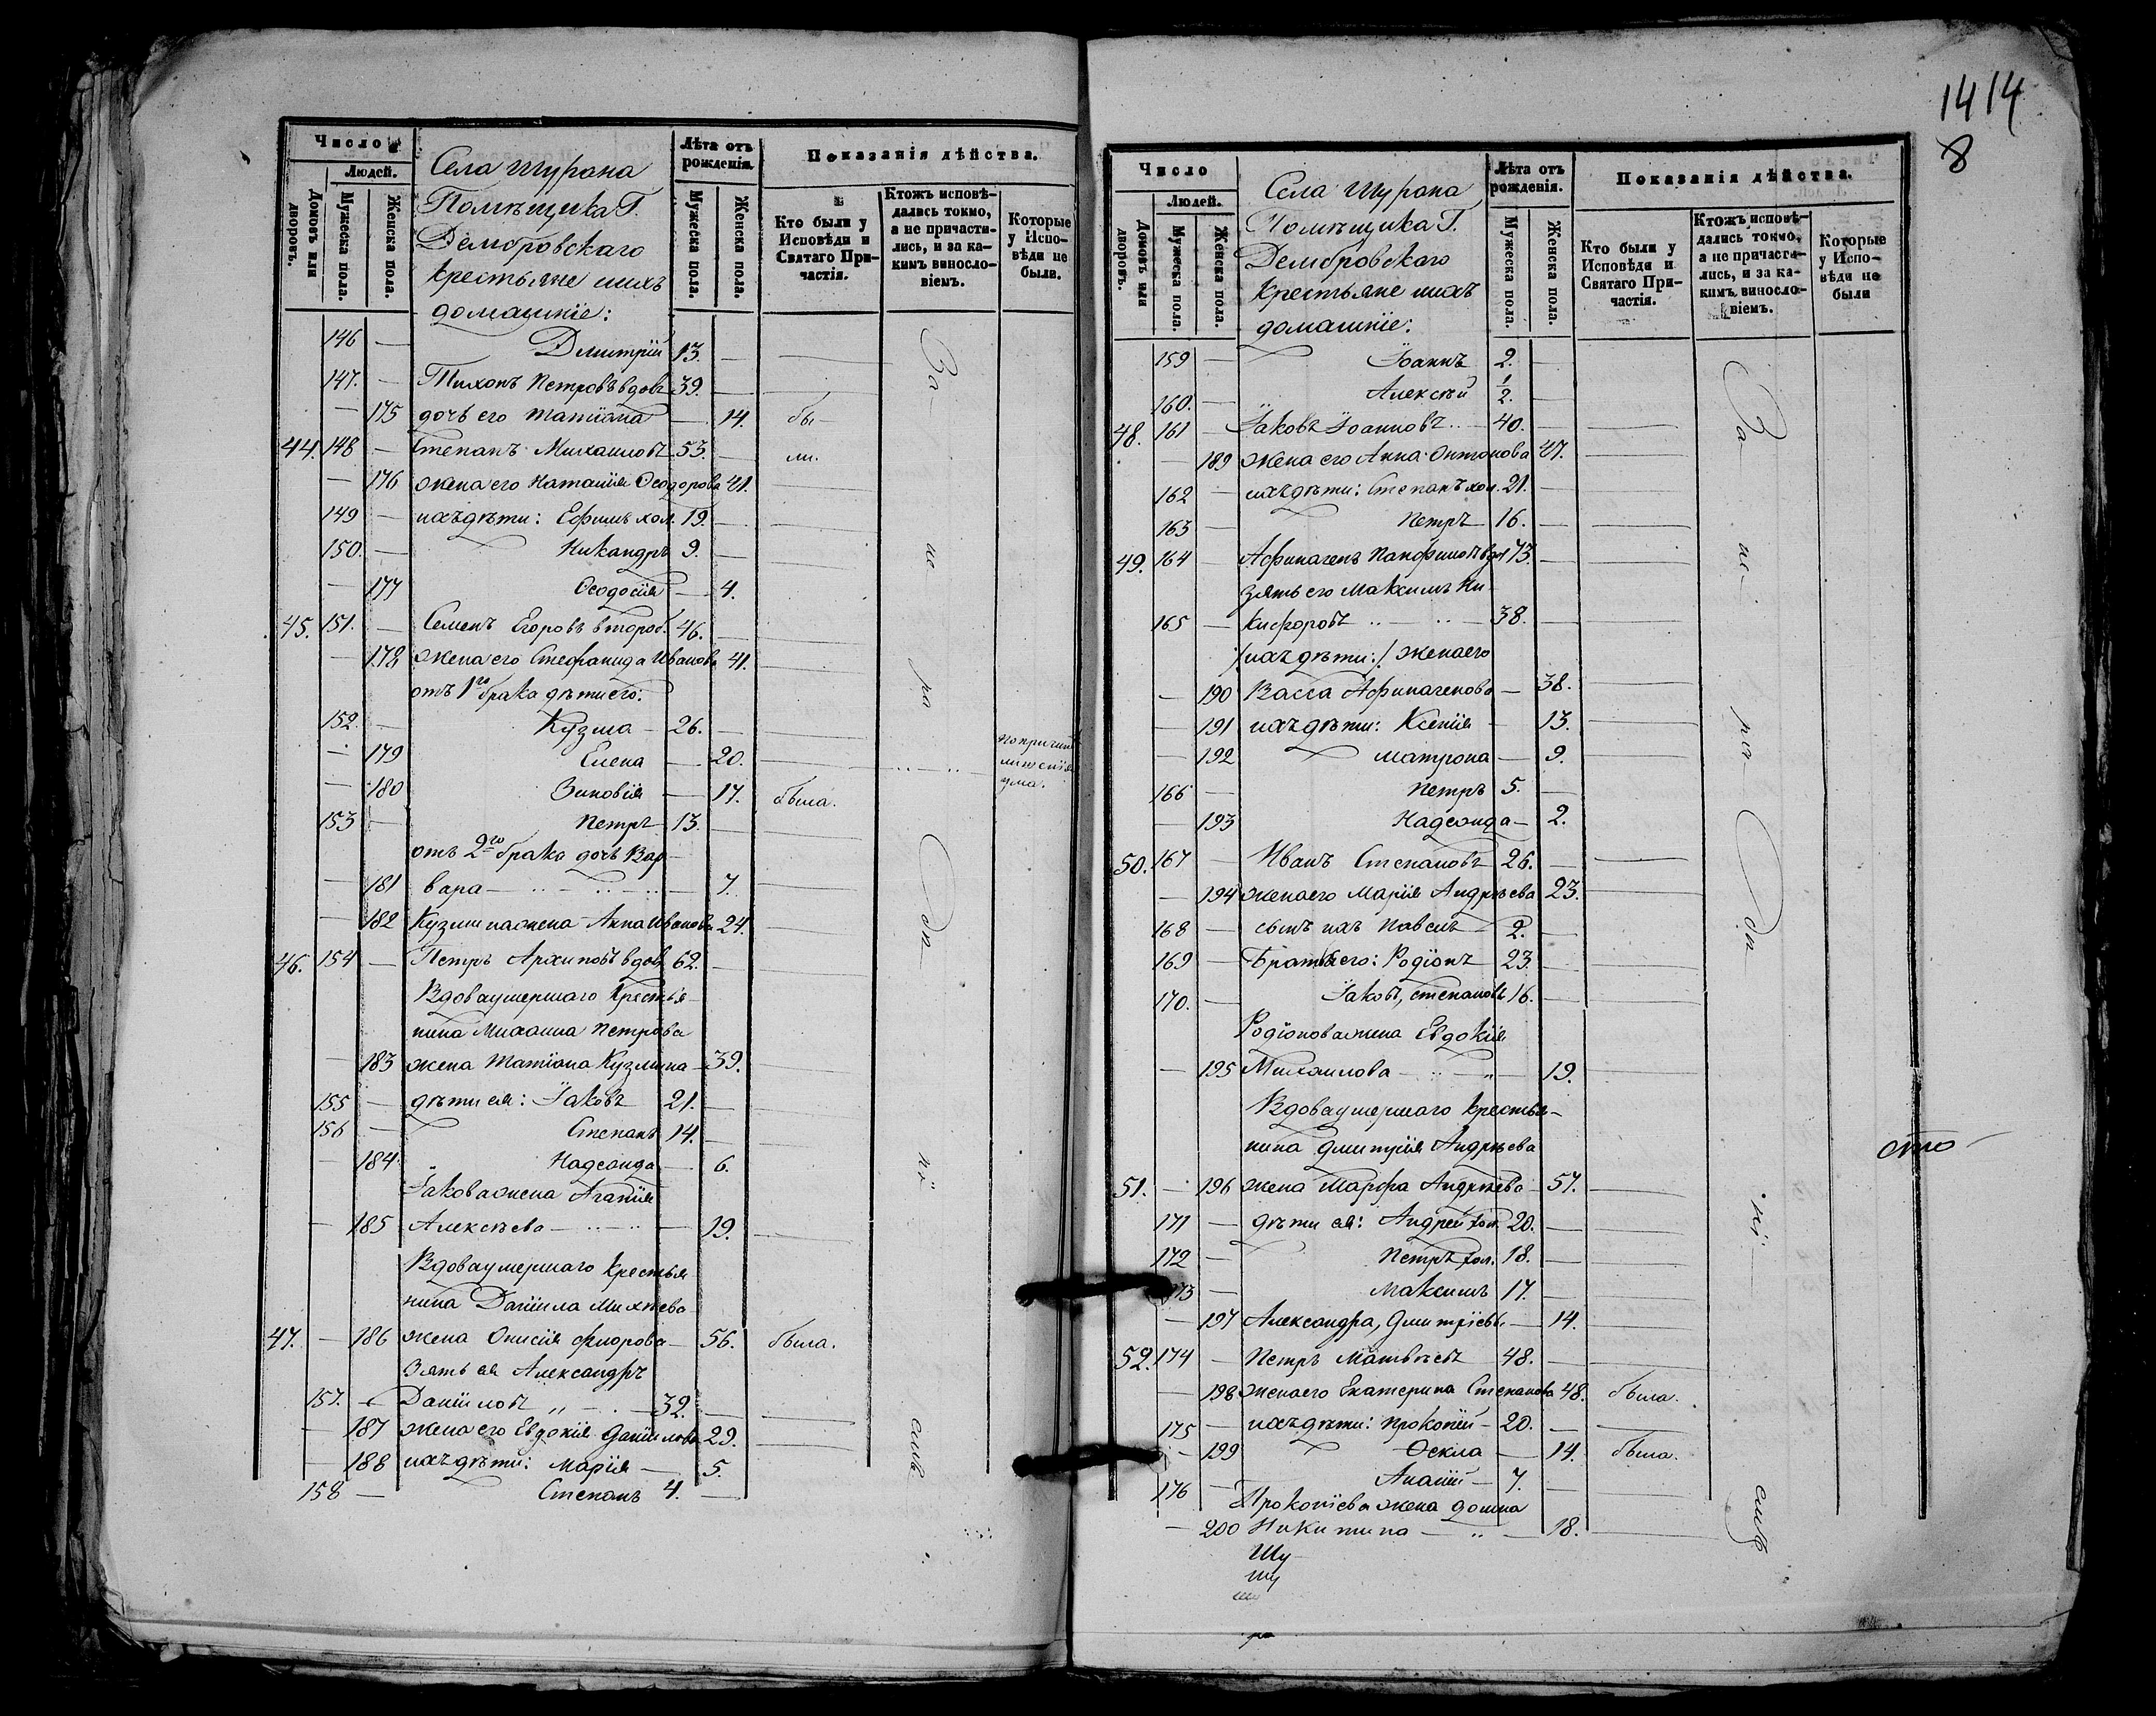 Число
Людей.
Домовъ или дворовъ.
Мужеска пола.
Женска пола.
Села Шурана
Помѣщика Г.
Дембровскаго
крестьяне и ихъ
домашніе:
Лѣта отъ рожденія.
Мужеска пола.
Женска пола.
Показанія дѣйства.
Кто были у Исповѣди и Святаго Причастія.
Ктожъ исповѣдались токмо, а не причастились, и за какимъ винословіемъ.
Которые у Исповѣди не были.
146 — Димитрій 13. —
147. — Тихонъ Петровъ вдовъ 39. —
— 175 дочь его Татіана — 14. бы-
44. 148 — Степанъ Михаиловъ 53. — ли.
— 176 жена его Наталія Ѳеодорова 41.
149 — ихъ дѣти: Ефимъ хол. 19. —
150. — Никандръ 9. —
— 177 Ѳеодосія — 4.
45. 151. — Семенъ Егоровъ второб. 46. —
— 178 жена его Стефанида Иванова 41.
отъ 1го брака дѣти его:
152. — Кузма — 26. —
— 179 Елена — 20.
— 180 Зиновія — 17. была.
153 — Петръ 13. —
отъ 2го брака дочь Вар-
— 181 вара — 7.
— 182 Кузмина жена Анна Иванова 24.
46. 154 — Петръ Архиповъ вдовъ 62. —
Вдова умершаго крестья-
нина Михаила Петрова
— 183 жена Татіана Кузмина — 39.
155 — дѣти ея: Іаковъ 21. —
156 — Степанъ 14. —
— 184 Надежда — 6.
Іакова жена Агапія
— 185 Алексѣева — 19.
Вдова умершаго крестья
нина Даніила Михѣева
47. — 186 жена Онисія Флорова — 56. была.
Зять ея Александръ
157. — Даніиловъ „ — 32. —
— 187 жена его Евдокія Даніилова 29.
— 188 ихъ дѣти: Марія — 5.
158 — Степанъ 4. —
За не ра дѣ ні емъ
по причинѣ
лишенія
ума.
1414
8
Число
Людей.
Домовъ или дворовъ.
Мужеска пола.
Женска пола.
Села Шурана
Помѣщика Г.
Дембровскаго
Крестьяне и ихъ
домашніе:
Лѣта отъ рожденія.
Мужеска пола.
Женска пола.
Показанія дѣйства.
Кто были у Исповѣди и Святаго Причастія.
Ктожъ исповѣдались токмо, а не причастились, и за какимъ винословіемъ.
Которые у Исповѣди не были
159 — Іоаннъ 2. —
160. — Алексѣй ½. —
48. 161 — Іаковъ Іоанновъ — 40. —
— 189 жена его Анна Антонова 47.
162 — ихъ дѣти: Степанъ хол. 21. —
163 — Петръ 16. —
49. 164 — Афиногенъ Панфиловъ вдов 73. —
Зять его Максимъ Ни
165 — кифоровъ — 38. —
/ихъ дѣти:/ жена его
— 190 Васса Афиногенова — 38.
— 191 ихъ дѣти: Ксенія — 13.
— 192 Матрона — 9.
166 — Петръ 5. —
— 193 Надежда — 2.
50. 167 — Иванъ Степановъ 26. —
— 194 жена его Марія Андрѣева 23.
168 — сынъ ихъ Павелъ 2. —
169 — Братья его: Родіонъ 23. —
170. — Іаковъ, Степановы 16. —
Родіонова жена Евдокія
— 195 Михаилова — „ — 19.
Вдова умершаго крестья-
нина Димитрія Андрѣева
51. — 196 жена Марфа Андрѣева — 57.
171 — дѣти ея: Андрей хол. 20. —
172 — Петръ хол. 18. —
173 — Максимъ 17. —
— 197 Александра, Димитріевы — 14.
52. 174 — Петръ Матвѣевъ 48. —
— 198 жена его Екатерина Степанова 48. была.
175 — ихъ дѣти: Прокопій — 20. —
— 199 Ѳекла — 14. была.
176 — Ананій — 7. —
Прокопіева жена Домна
— 200 Никитина — „ — 18.
За не ра дѣ ні емъ
Шу
Шу